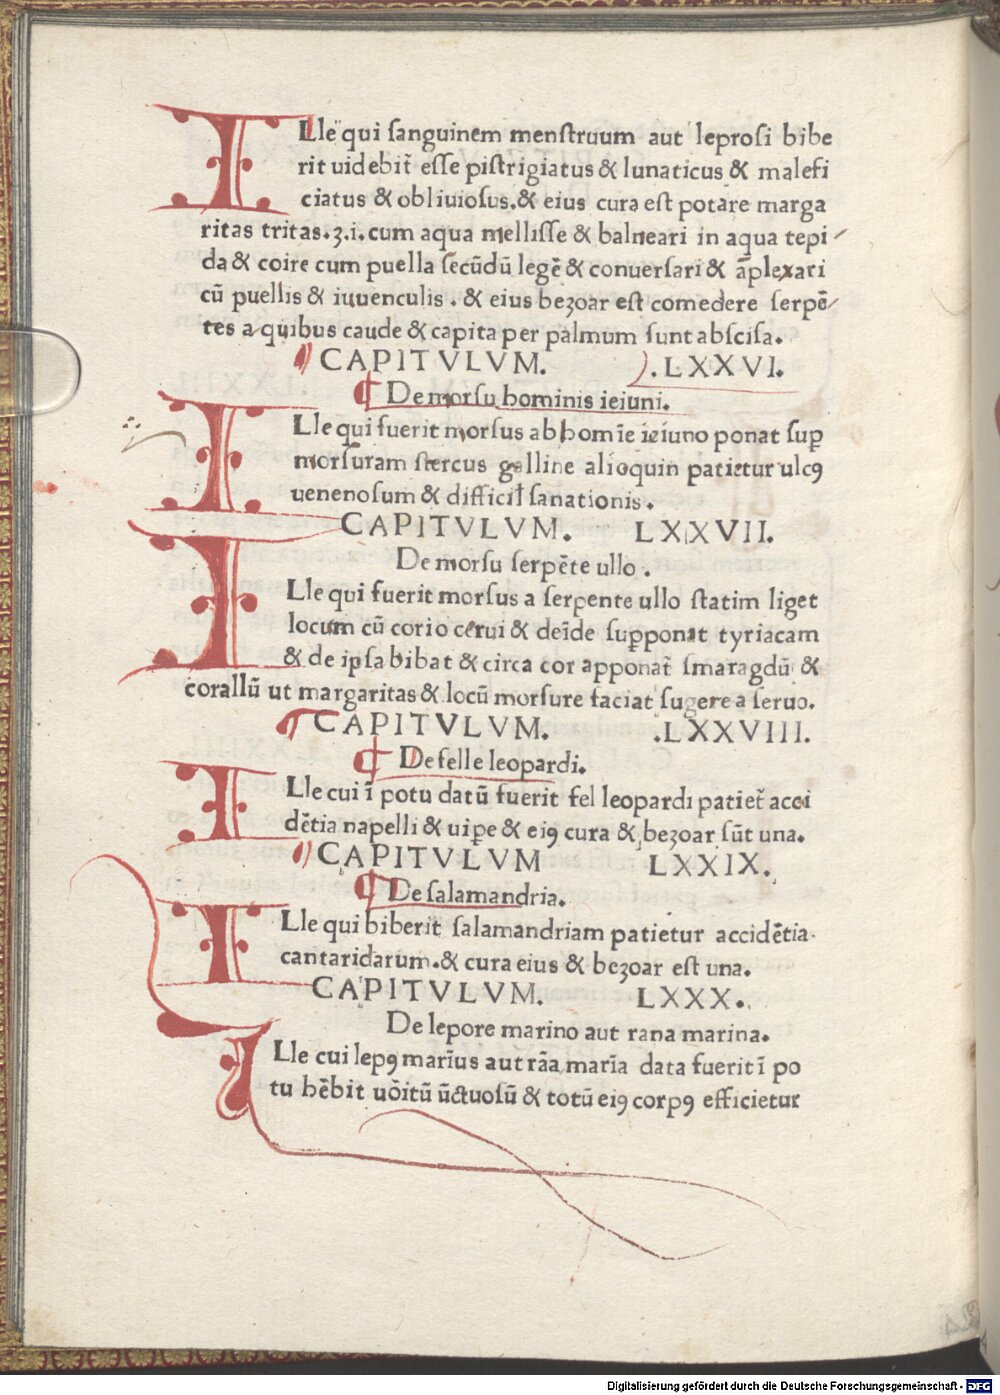 ILle qui sanguinem menstruum aut leprosi bibe
rit uidebit̃ esse pistrigiatus & lunaticus & malefi
ciatus & obliuiosus.& eius cura est potare marga
ritas tritas.ʒ.i.cum aqua mellisse & balneari in aqua tepi
da & coire cum puella secūdū legē & conuersari & āplexari
cū puellis & iuuenculis . & eius beʒoar est comedere serpē
tes a quibus caude & capita per palmum sunt abscisa.
CAPITVLVM. .LXXVI.
De morsu hominis ieiuni.
ILle qui fuerit morsus ab homīe ieiuno ponat suꝑ
morsuram stercus galline alioquin patietur ulcꝯ
uenenosum & difficil̃ sanationis.
CAPITVLVM. LXXVII.
De morsu serpēte ullo.
ILle qui fuerit morsus a serpente ullo statim liget
locum cū corio cerui & deīde suꝑponat tyriacam
& de ipsa bibat & circa cor apponat̃ smaragdū &
corallū ut margaritas & locū morsure faciat sugere a seruo.
CAPITVLVM. .LXXVIII.
De felle leopardi.
ILle cui ī potu datū fuerit fel leopardi patiet̃ acci
dētia napelli & uiꝑe & eiꝯ cura & beʒoar sūt una.
CAPITVLVM LXXIX.
De salamandria.
ILle qui biberit salamandriam patietur accidētia
cantaridarum.& cura eius & beʒoar est una.
CAPITVLVM. LXXX.
De lepore marino aut rana marina.
ILle cui lepꝯ marīus aut rāa marīa data fuerit ī po
tu hēbit uōitū ūctuosū & totū eiꝯ corpꝯ efficietur
Digitalisierung gefördert durch die Deutsche Forschungsgemeinschaft - DFG